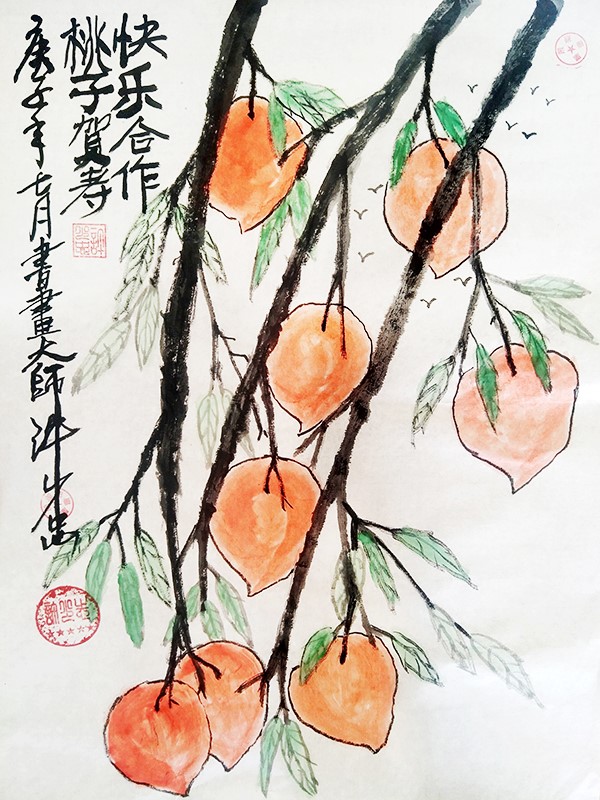 快乐合作
桃子賀寿
庚子年七月書畫大師